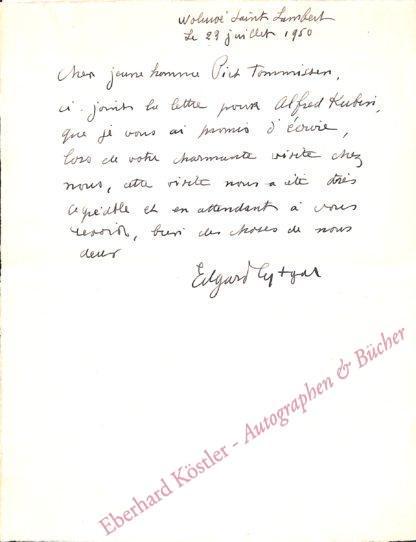 Woluwé Saint Lambert
Le 29 juillet 1950
Cher jeune homme Piet Tommissen,
ci-joints la lettre pour Alfred Kubin,
que je vous ai promis d'écrire,
lors de votre charmante visite chez
nous, cette visite nous a été très
agréable et en attendant à vous
revoir, bien des choses de nous
deux
Edgard Tytgat
Eberhard Köstler - Autographen & Bücher